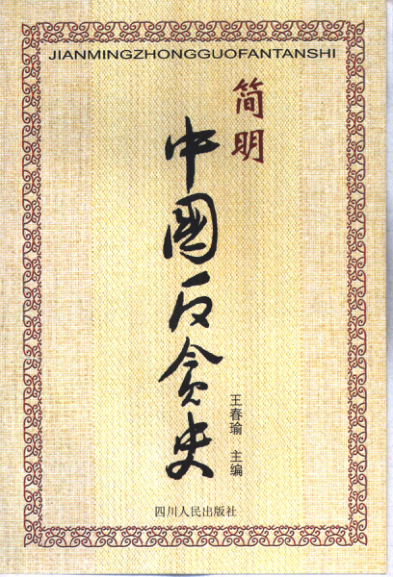 JIANMINGZHONGGUOFANTANSHI
简明
中國反贪史
王春瑜 主编
四川人民出版社